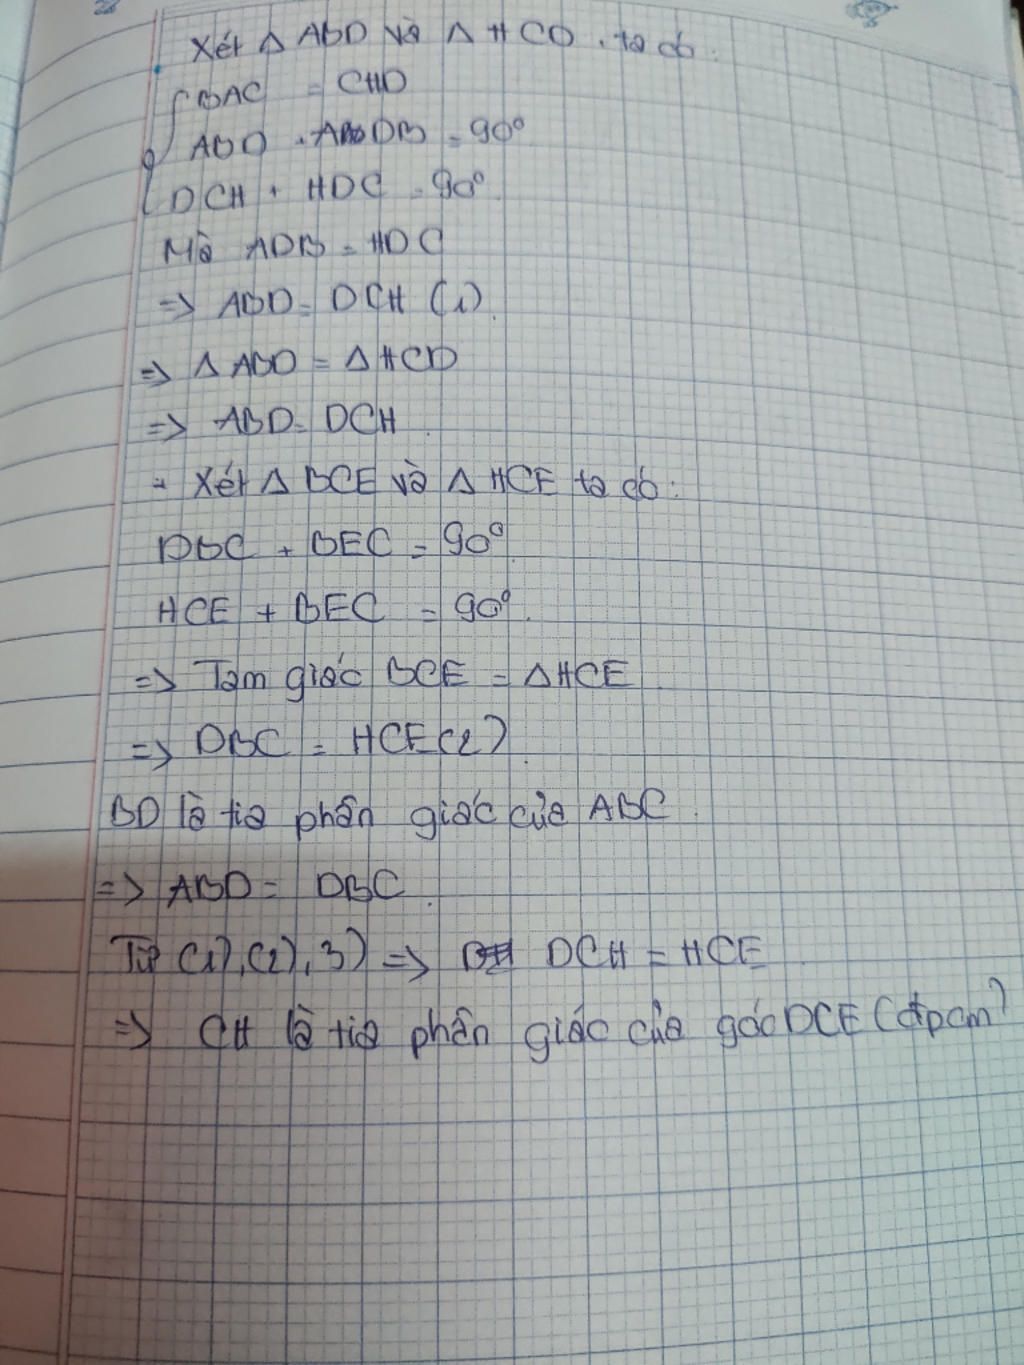 Xét Δ ABD và Δ HCD, ta có:
BAC = CHD
ABD + ADB = 90°
DCH + HDC = 90°
Mà ADB = HDC
=> ABD = DCH (1)
=> Δ ABD = Δ HCD
=> ABD = DCH
- Xét Δ BCE và Δ HCE ta có:
DBC + BEC = 90°
HCE + BEC = 90°.
=> Tam giác BCE = ΔHCE
=> DBC = HCE (2)
BD là tia phân giác của ABC.
=> ABD = DBC.
Từ (1), (2), 3) => DCH = HCE
=> CH là tia phân giác của góc DCE (đpcm)